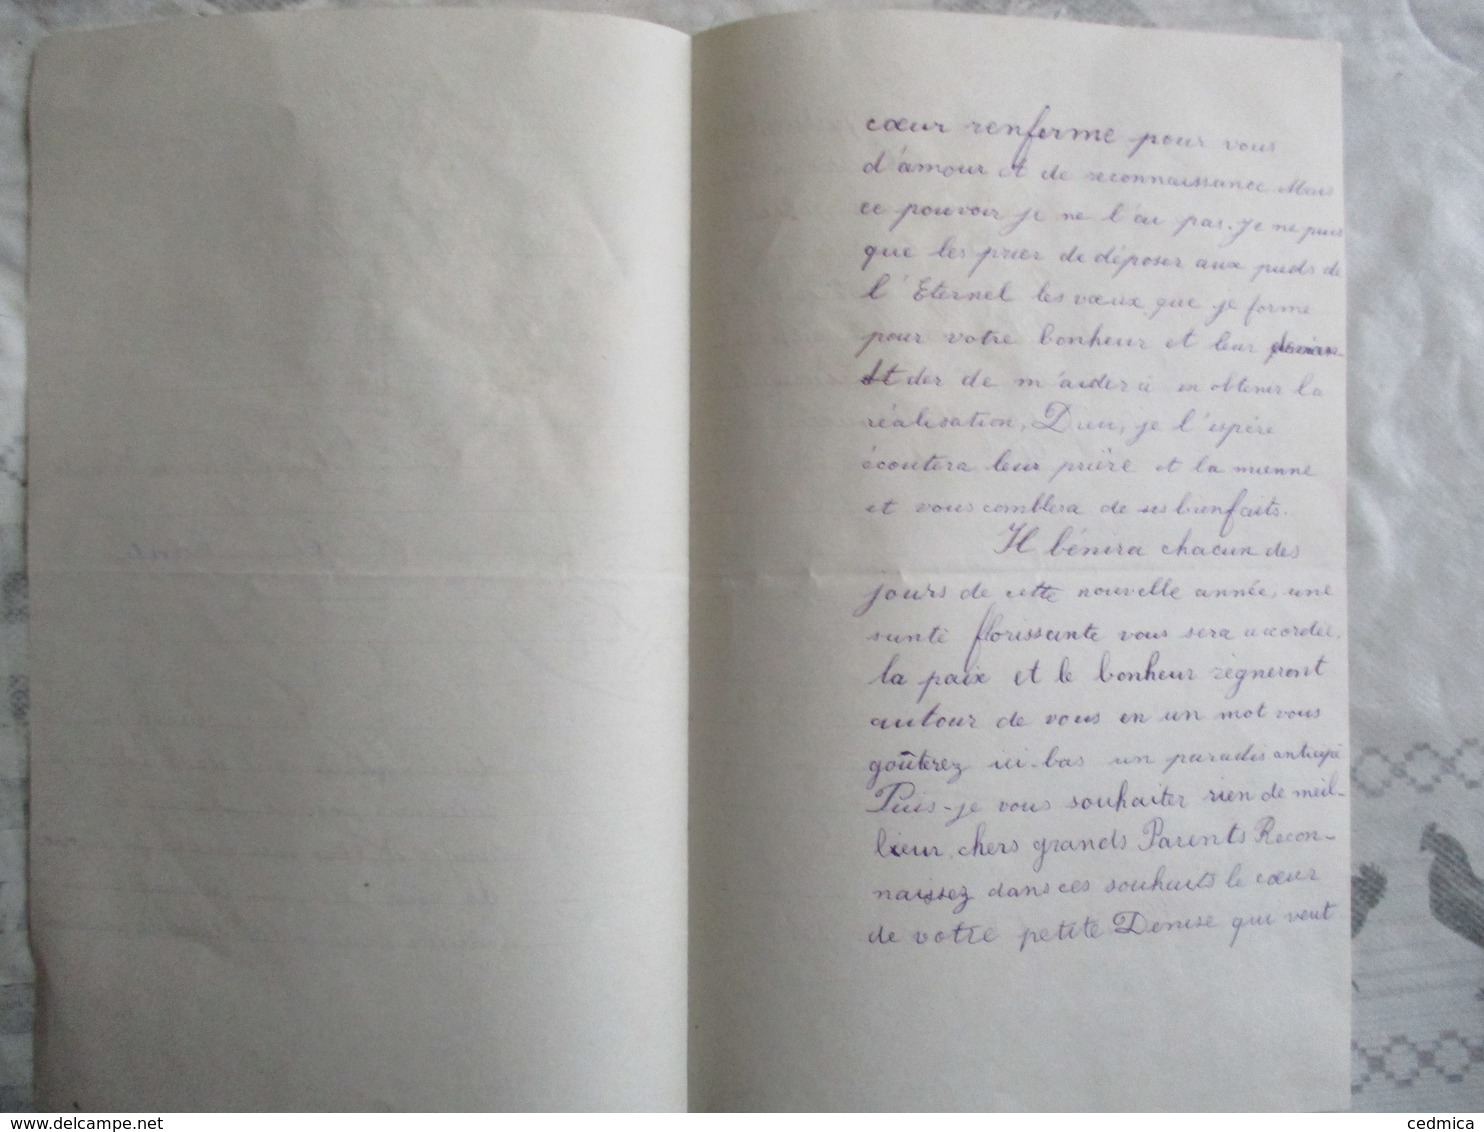 cœur renferme pour vous
d'amour et de reconnaissance Mais
ce pouvoir je ne l'ai pas. Je ne puis
que les prier de déposer aux pieds de
l'Eternel les vœux que je forme
pour votre bonheur et leur
der de m'aider à en obtenir la
réalisation, Dieu, je l'espère
écoutera leur prière et la mienne
et vous comblera de ses bienfaits.
Il bénira chacun des
jours de cette nouvelle année, une
santé florissante vous sera accordée,
la paix et le bonheur règneront
autour de vous en un mot vous
goûterez ici-bas un paradis anticipé
Puis-je vous souhaiter rien de meil-
lieur, chers grands Parents Recon-
naissez dans ces souhaits le cœur
de votre petite Denise qui veut
www.delcampe.net
cedmica